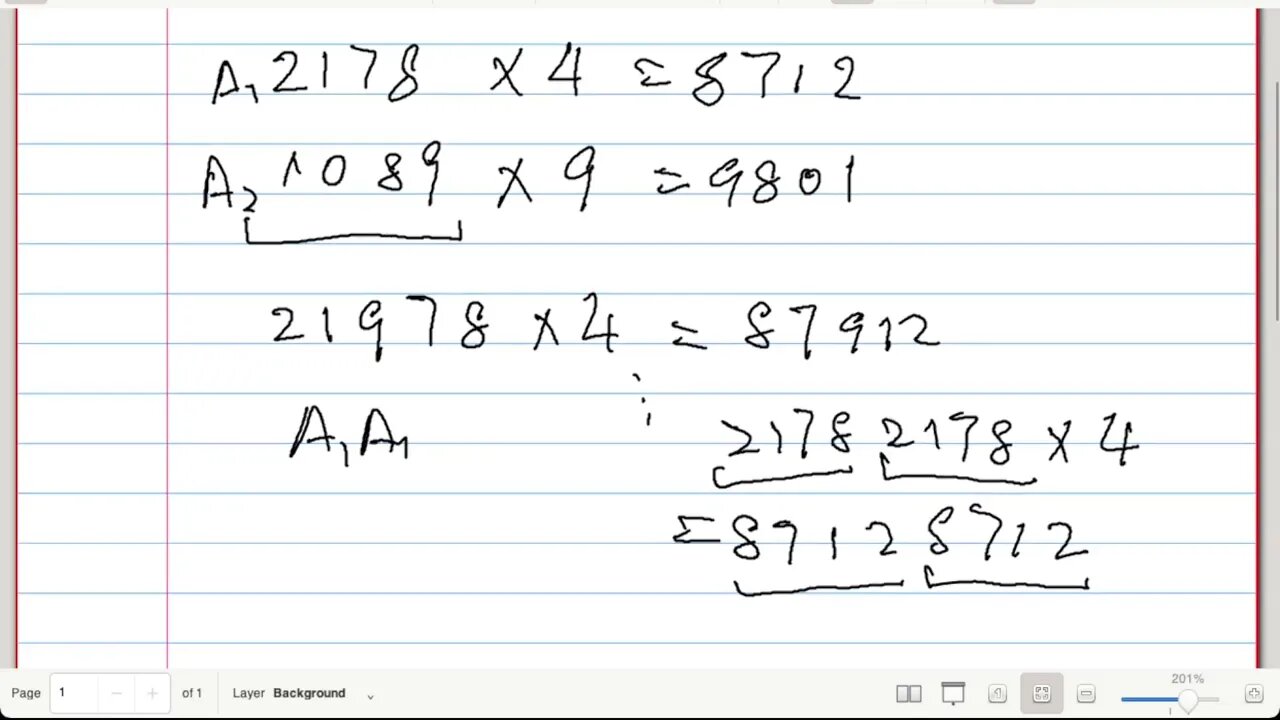 A₁ 2178 × 4 = 8712
A₂ 1089 × 9 = 9801
21978 × 4 = 87912
⋮
A₁A₁
2178 2178 × 4
= 8712 8712
Page 1 of 1 Layer Background 201%